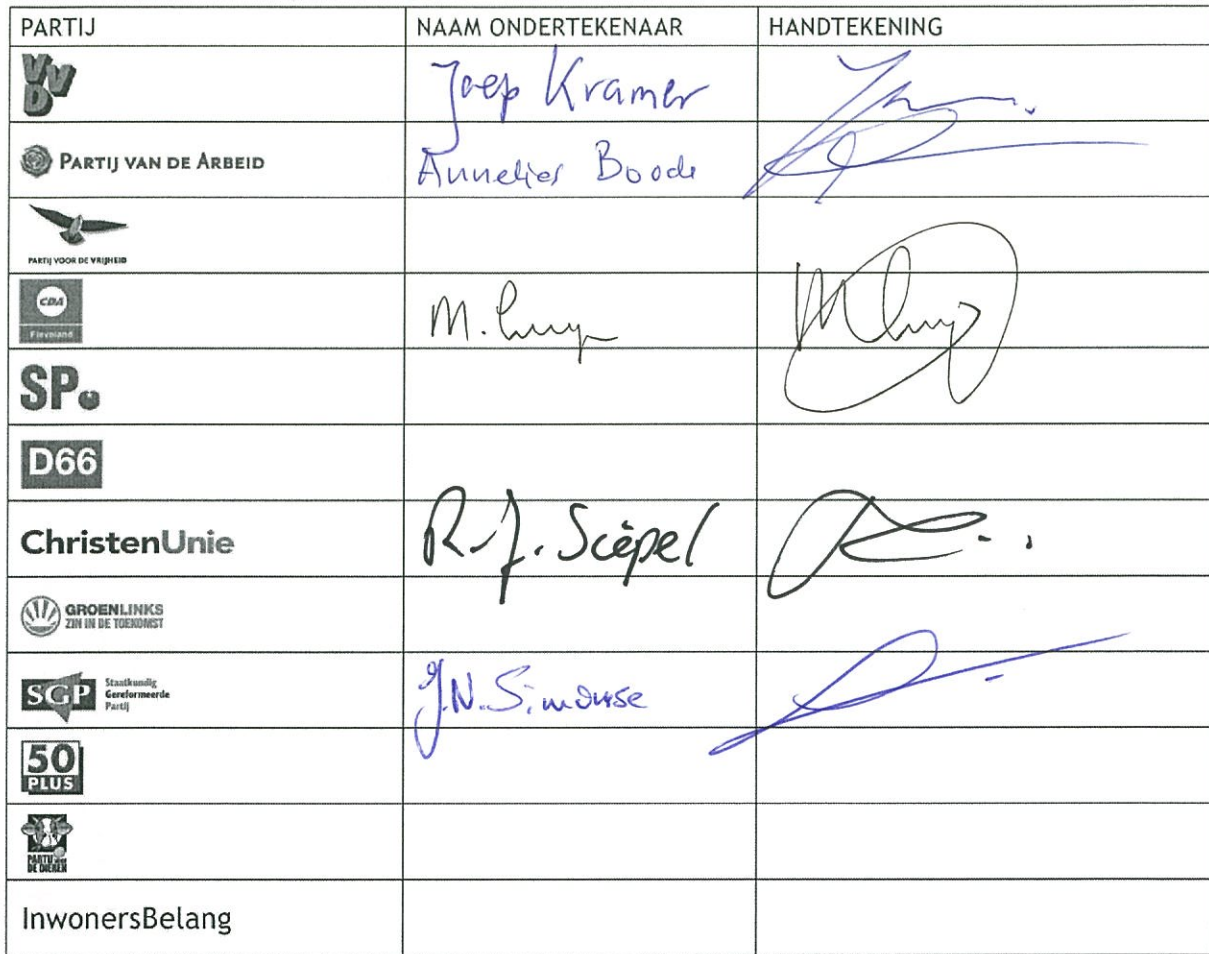 PARTIJ NAAM ONDERTEKENAAR HANDTEKENING
VVD Joep Kramer
PARTIJ VAN DE ARBEID Annelies Boode
PARTIJ VOOR DE VRIJHEID
CDA
Flevoland M.
SP.
D66
ChristenUnie R.J. Sièpel
GROENLINKS
ZIN IN DE TOEKOMST
SGP Staatkundig
Gereformeerde
Partij J.N. Simonse
50
PLUS
PARTIJ voor
DE DIEREN
InwonersBelang